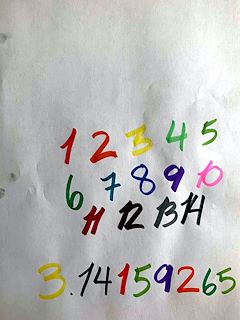 1 2 3 4 5
6 7 8 9 10
11 12 13 14
3.14159265